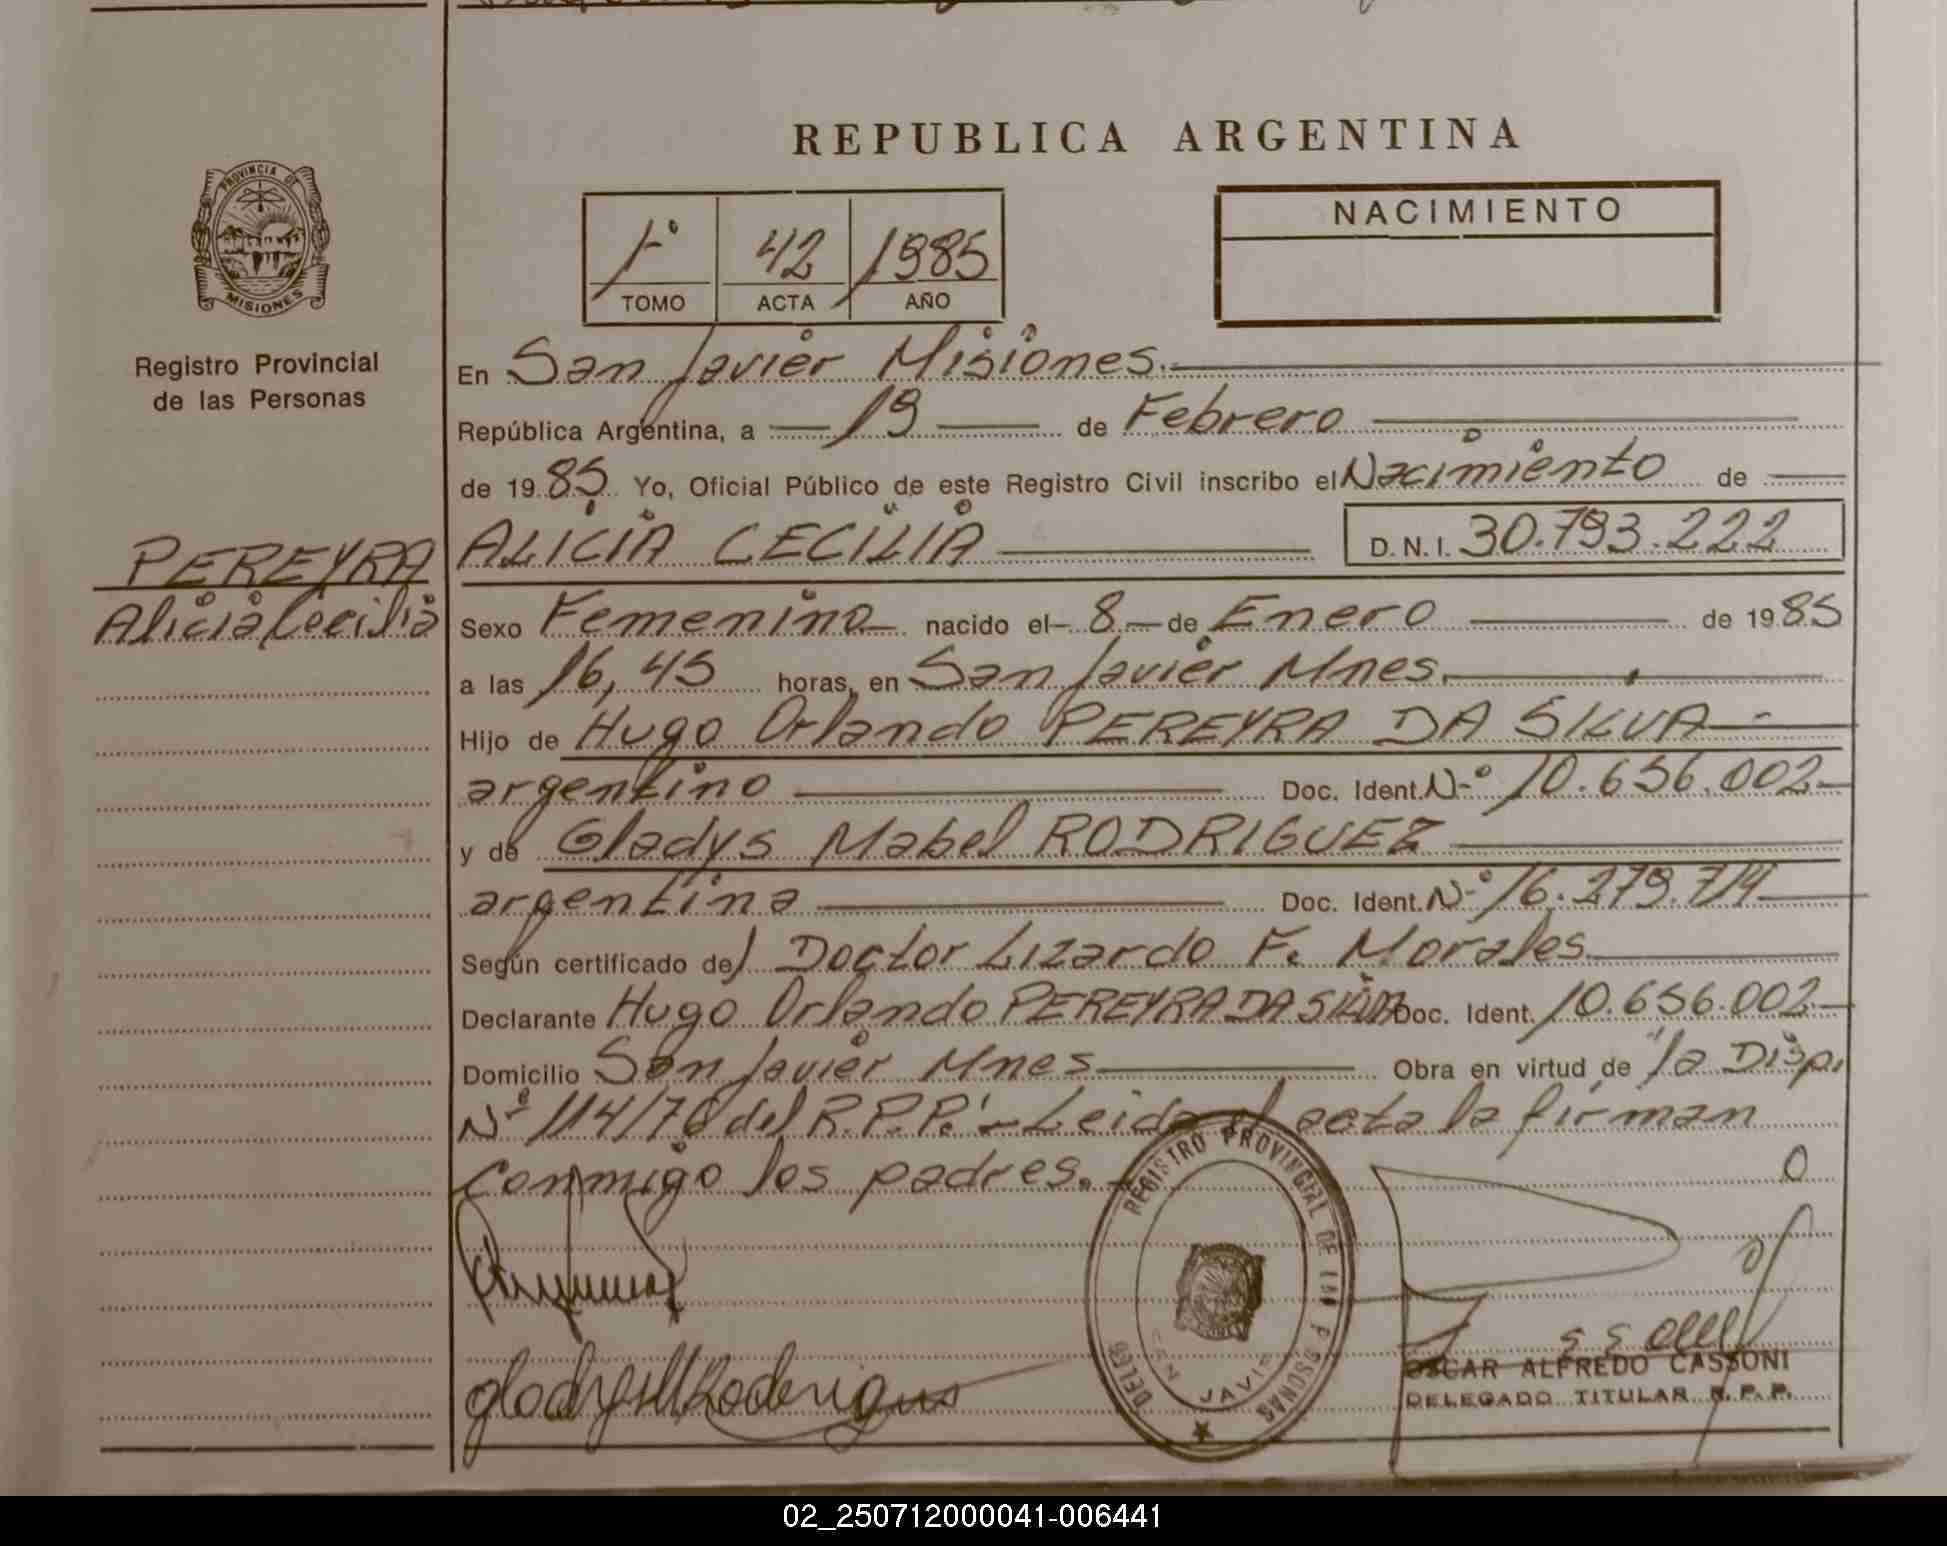 REPUBLICA ARGENTINA
PROVINCIA DE
MISIONES
Registro Provincial
de las Personas
1º 42 1985
TOMO ACTA AÑO
NACIMIENTO
En San Javier Misiones.
República Argentina, a 19 de Febrero
de 1985 Yo, Oficial Público de este Registro Civil inscribo el Nacimiento de
PEREYRA
Alicia Cecilia
ALICIA CECILIA D.N.I. 30.793.222
Sexo Femenino nacido el 8 de Enero de 1985
a las 16,45 horas, en San Javier Mnes.
Hijo de Hugo Orlando PEREYRA DA SILVA
argentino Doc. Ident. Nº 10.656.002
y de Gladys Mabel RODRIGUEZ
argentina Doc. Ident. Nº 16.279.714
Según certificado del Doctor Lizardo F. Morales
Declarante Hugo Orlando PEREYRA DA SILVA Doc. Ident. 10.656.002
Domicilio San Javier Mnes Obra en virtud de "la Disp.
Nº 114/76 del R.P.P." - Leida el acta la firman
conmigo los padres.
REGISTRO PROVINCIAL DE LAS PERSONAS
OSCAR ALFREDO CASSONI
DELEGADO TITULAR R.P.P.
02_250712000041-006441